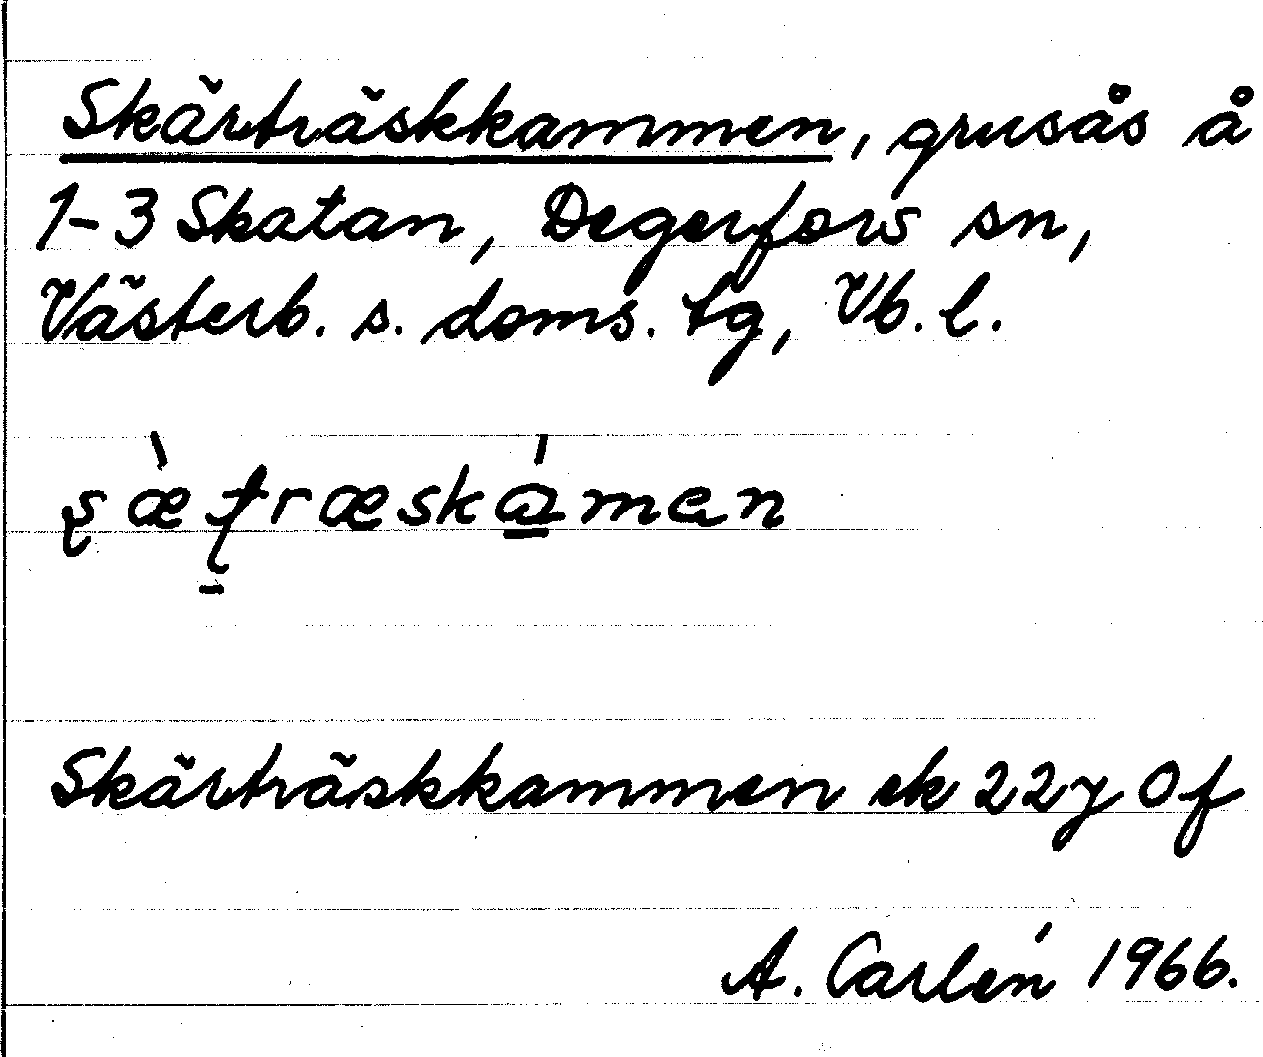 Skärträskkammen, grusås å
1-3 Skatan, Degerfors sn,
Västerb. s. doms. tg, Vb. l.
Skärträskkammen ek 22y 0f
A. Carlén 1966.